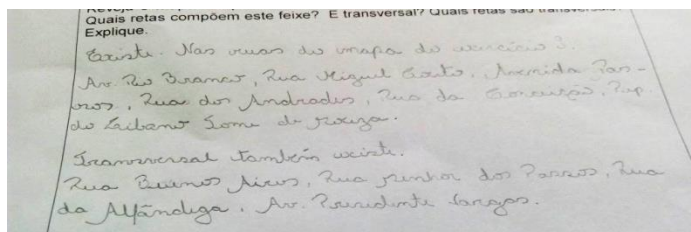 Quais retas compõem este feixe? E transversal? Quais retas são
Explique.
Existe. Nas ruas do mapa do exercício 3.
Av. Rio Branco, Rua Miguel Couto, Avenida Pas-
sos, Rua dos Andradas, Rua da Conceição, Rep.
do Líbano Gome de
Transversal também existe.
Rua Buenos Aires, Rua Senhor dos Passos, Rua
da Alfândega, Av. Presidente Vargas.